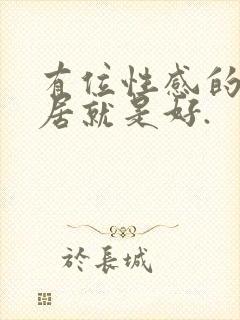 有位性感的
居就是好.
於長城